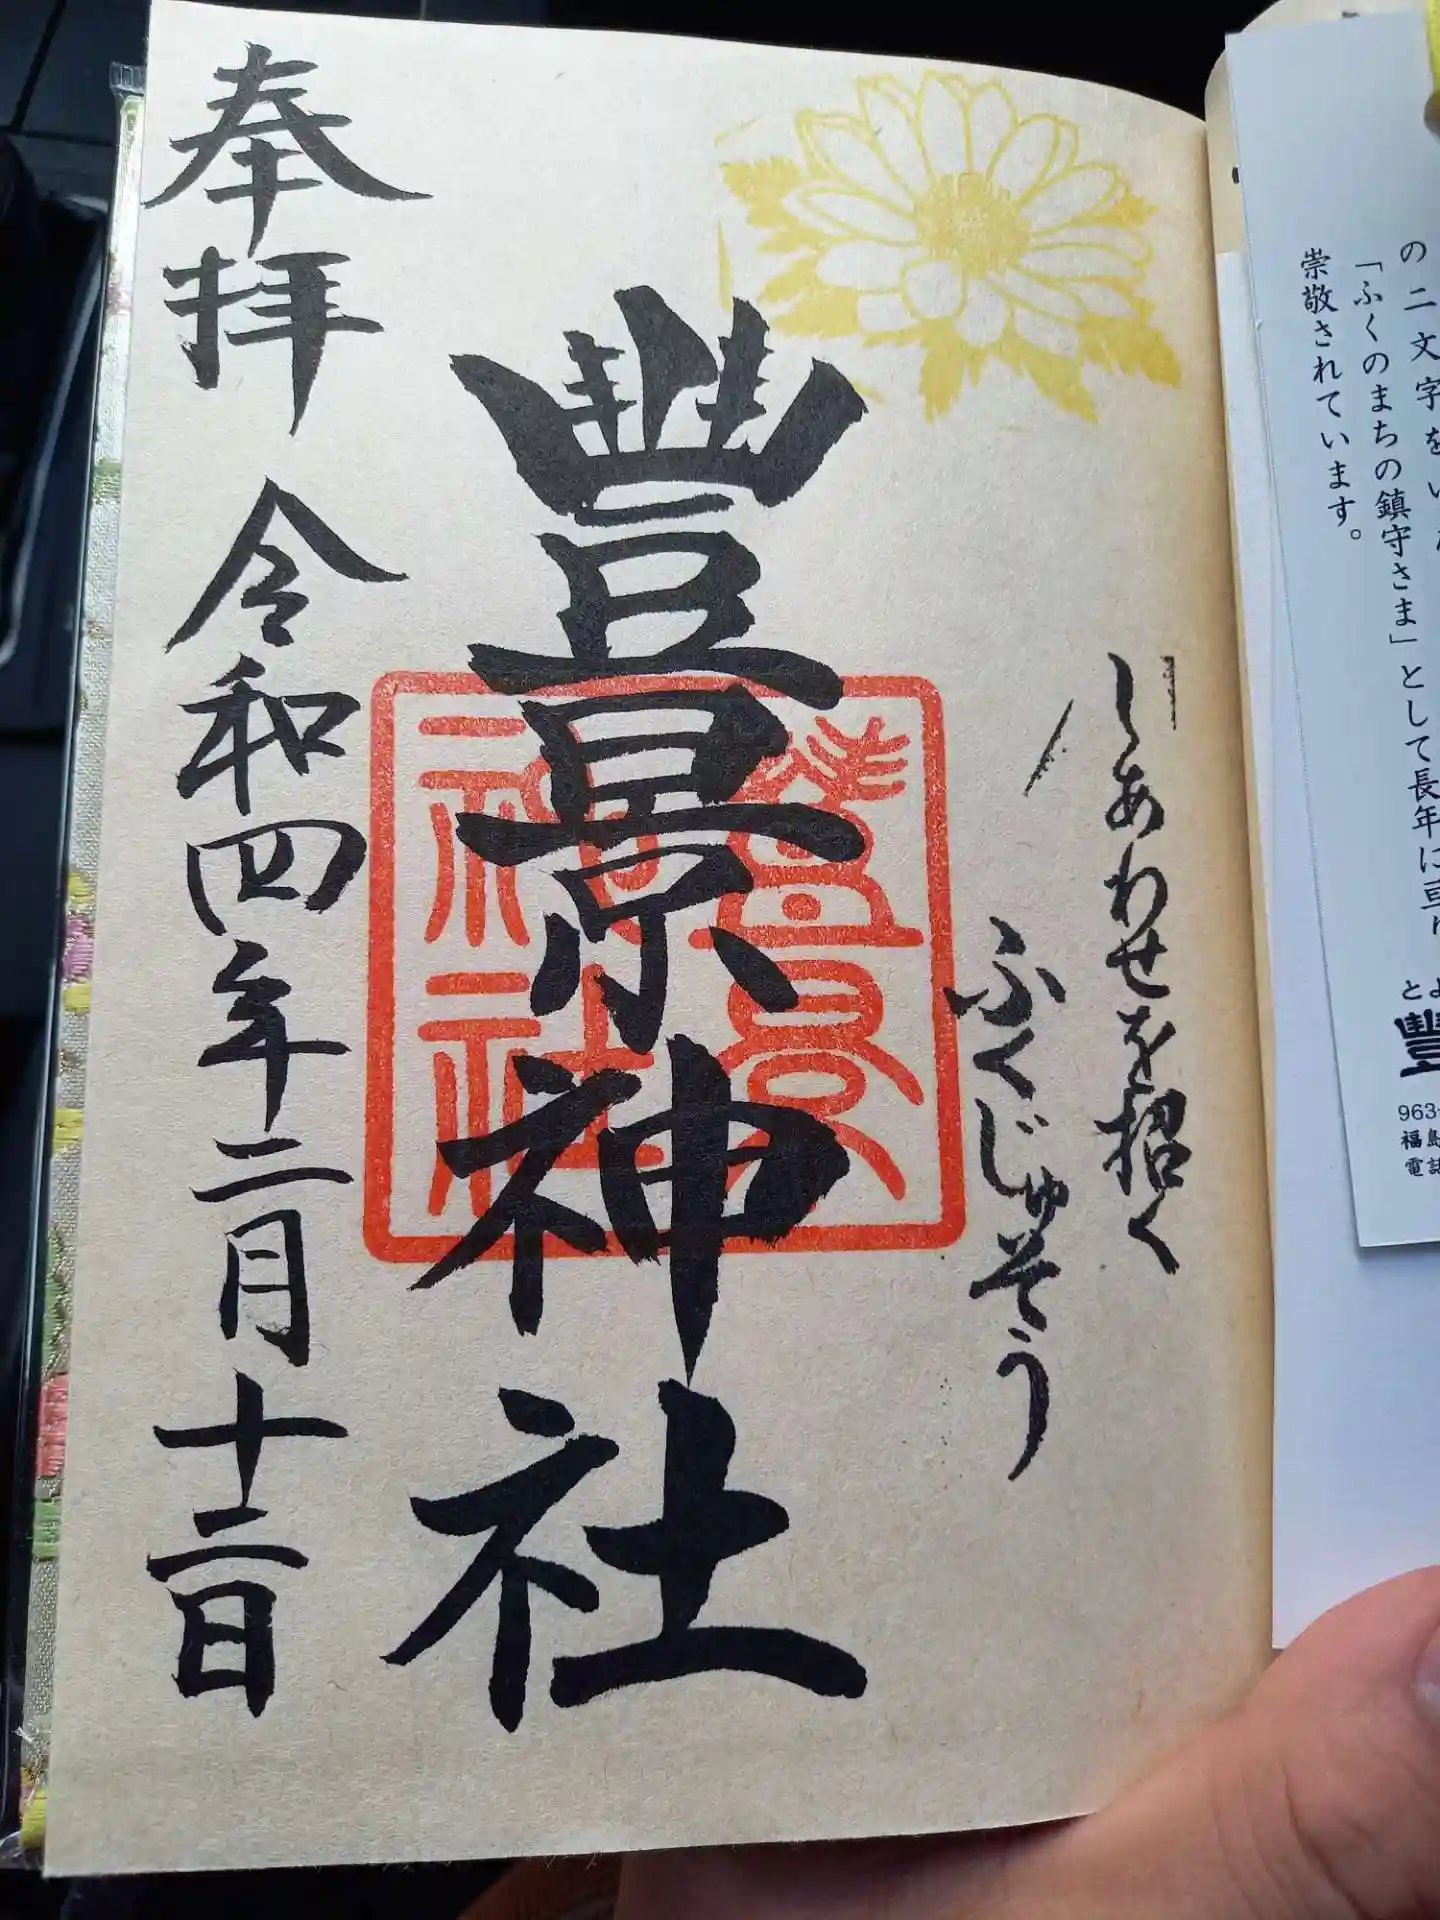 の二文字を
「ふくのまちの鎮守さま」として長年に
崇敬されています。
とよ
豐
963-
福島
電話
しあわせを招く
ふくじゅそう
豐景神社
豐景
神社
奉拝 令和四年二月十二日